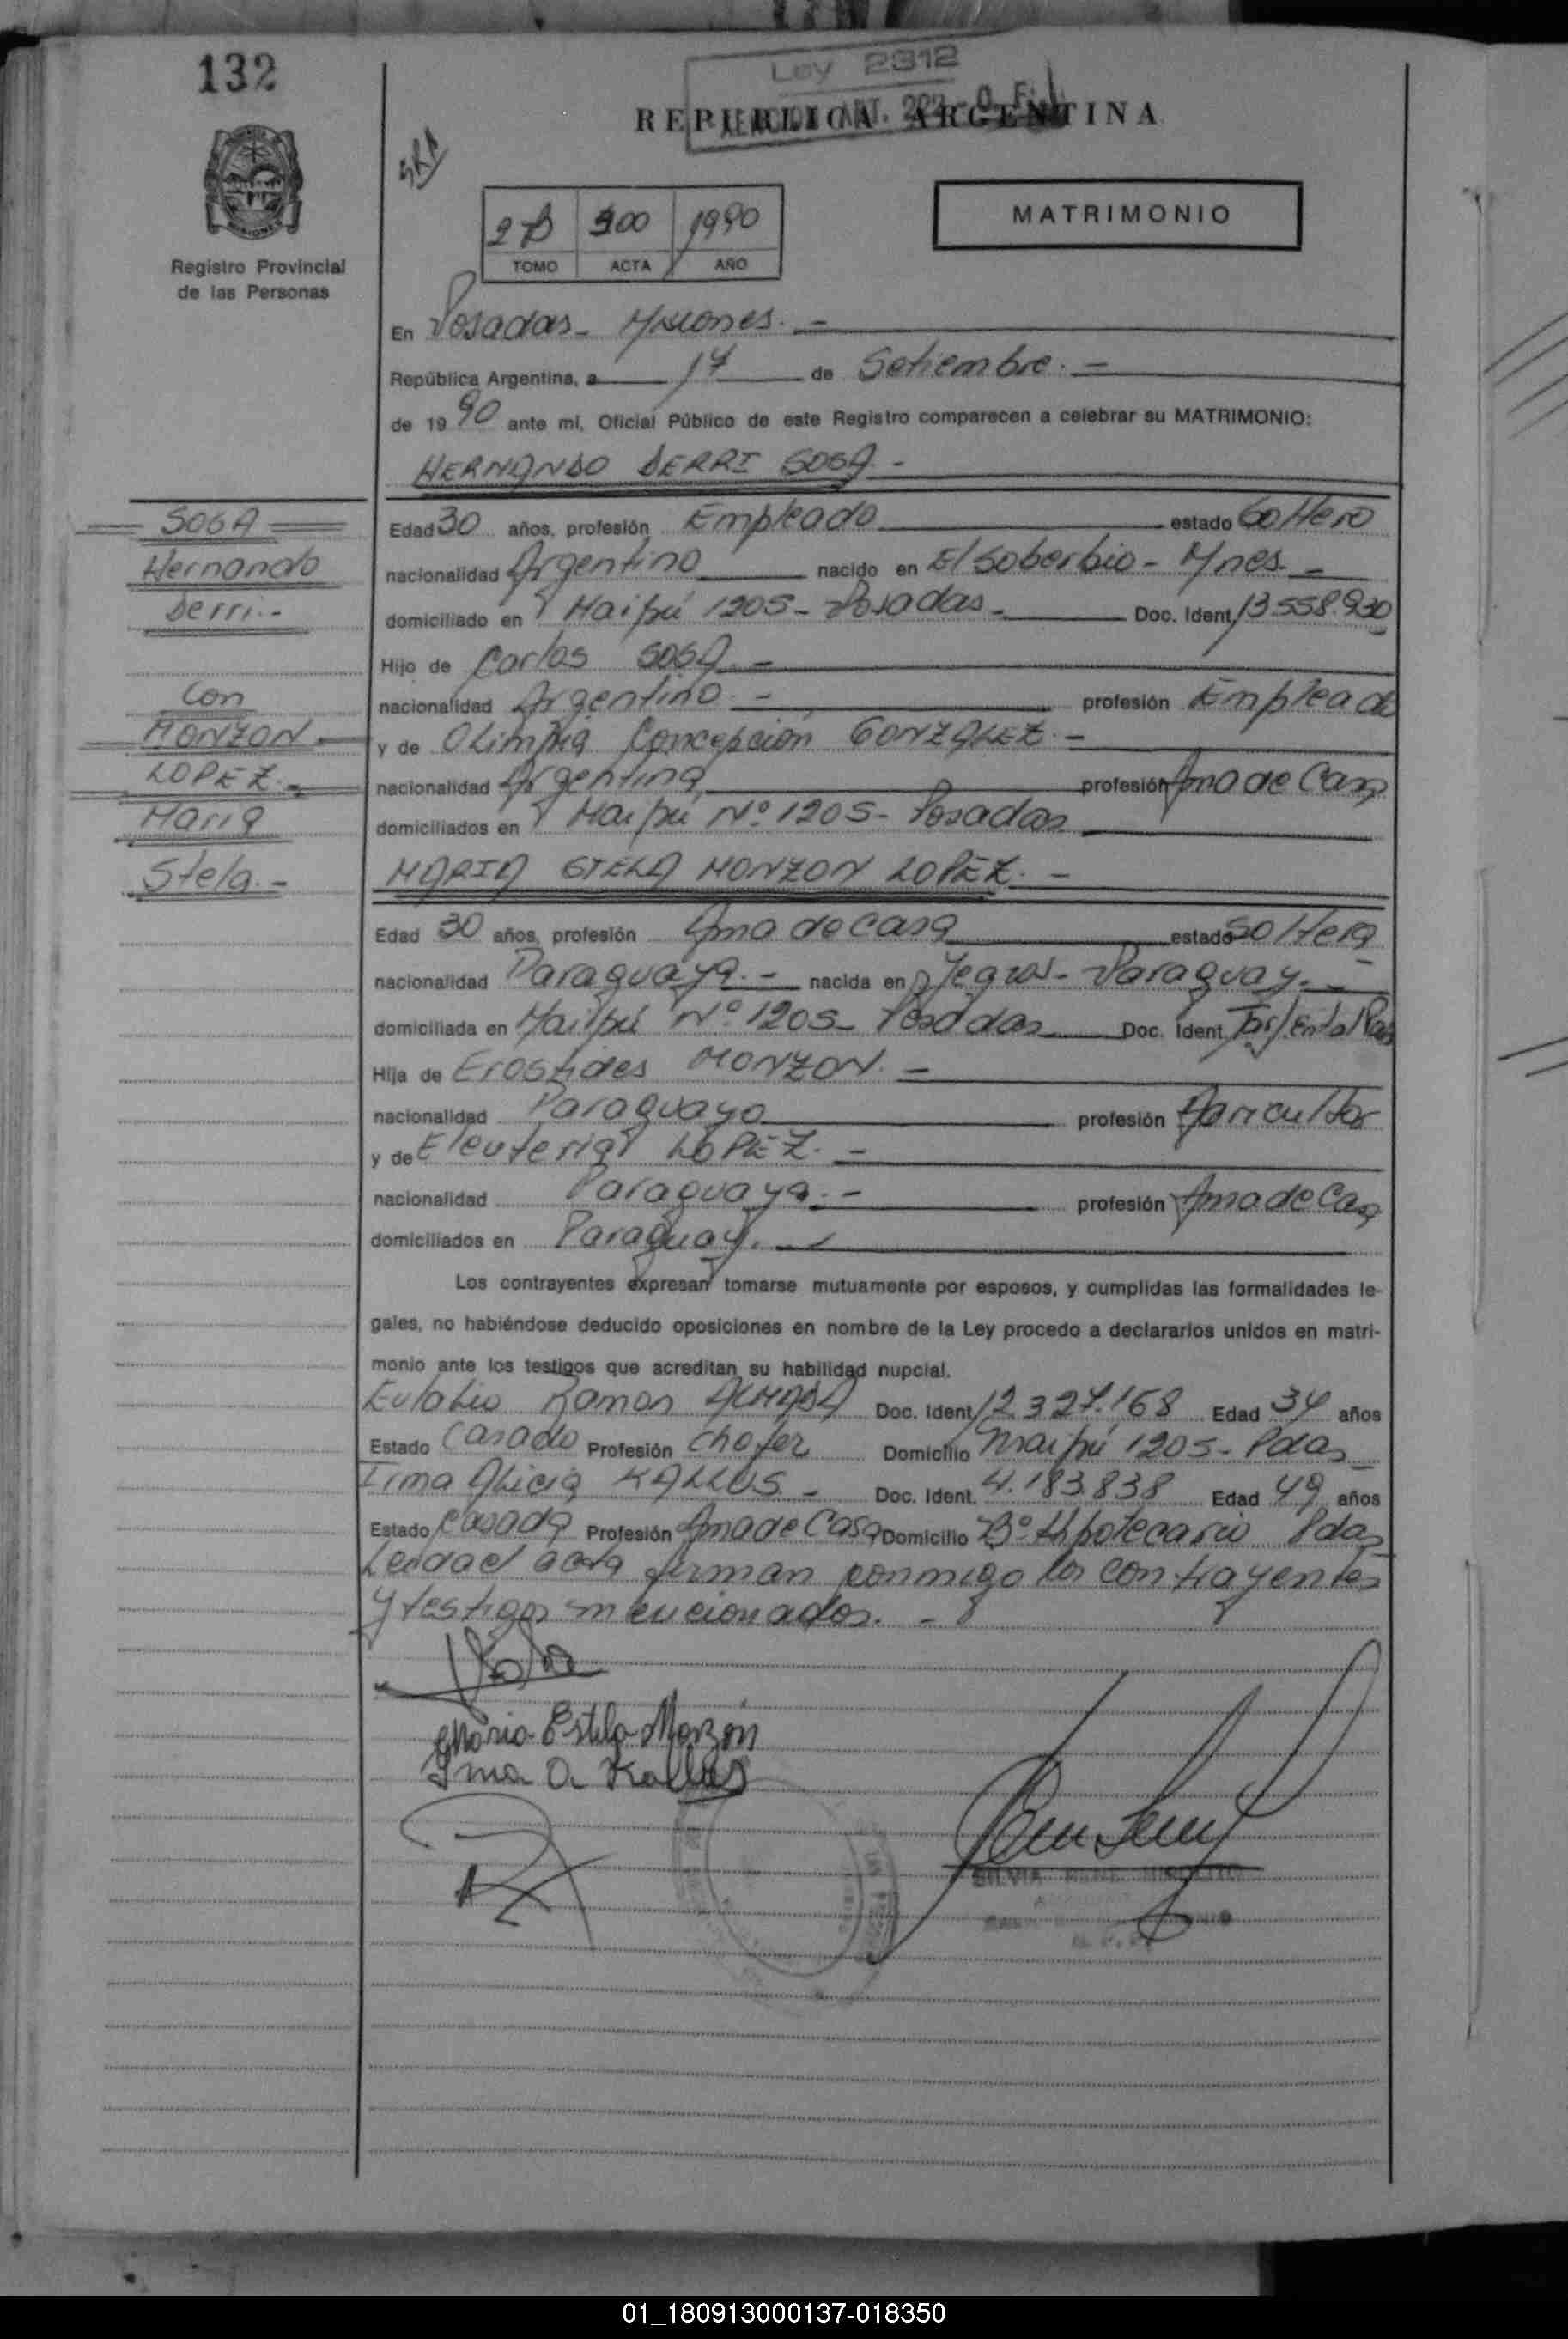 132
Ley 2312
REPUBLICA ARGENTINA
SRA
MATRIMONIO
2 B 900 1990
TOMO ACTA AÑO
Registro Provincial
de las Personas
En Posadas - Misiones. -
República Argentina, a 17 de Setiembre. -
de 19 90 ante mí, Oficial Público de este Registro comparecen a celebrar su MATRIMONIO:
HERNANDO DERRI SOSA. -
SOSA
Hernando
Derri. -
Con
MONZON
LOPEZ. -
Maria
Stela. -
Edad 30 años, profesión Empleado estado Soltero
nacionalidad Argentino nacido en El Soberbio - Mnes -
domiciliado en Maipú 1205 - Posadas - Doc. Ident. 13.558.930
Hijo de Carlos SOSA. -
nacionalidad Argentino. - profesión Empleado
y de Olimpia Concepción GONZALEZ. -
nacionalidad Argentina profesión Ama de Casa
domiciliados en Maipú Nº 1205 - Posadas
MARIA STELA MONZON LOPEZ. -
Edad 30 años, profesión Ama de casa estado Soltera
nacionalidad Paraguaya. - nacida en Yegros - Paraguay. -
domiciliada en Maipú Nº 1205 - Posadas Doc. Ident.
Hija de Erostides MONZON. -
nacionalidad Paraguayo profesión Agricultor
y de Eleuteria LOPEZ. -
nacionalidad Paraguaya. - profesión Ama de Casa
domiciliados en Paraguay. -
Los contrayentes expresan tomarse mutuamente por esposos, y cumplidas las formalidades le-
gales, no habiéndose deducido oposiciones en nombre de la Ley procedo a declararlos unidos en matri-
monio ante los testigos que acreditan su habilidad nupcial.
Eulalio Ramon ALMADA Doc. Ident. 12.327.168 Edad 34 años
Estado Casado Profesión Chofer Domicilio Maipú 1205 - Pdas
Irma Alicia KALLUS - Doc. Ident. 4.183.838 Edad 49 años
Estado Casada Profesión Ama de Casa Domicilio Bº Hipotecario Pdas
Leida el acta firman conmigo los contrayentes
y testigos mencionados. -
Maria Estela Monzón
Irma A. Kallus
SILVIA
01_180913000137-018350